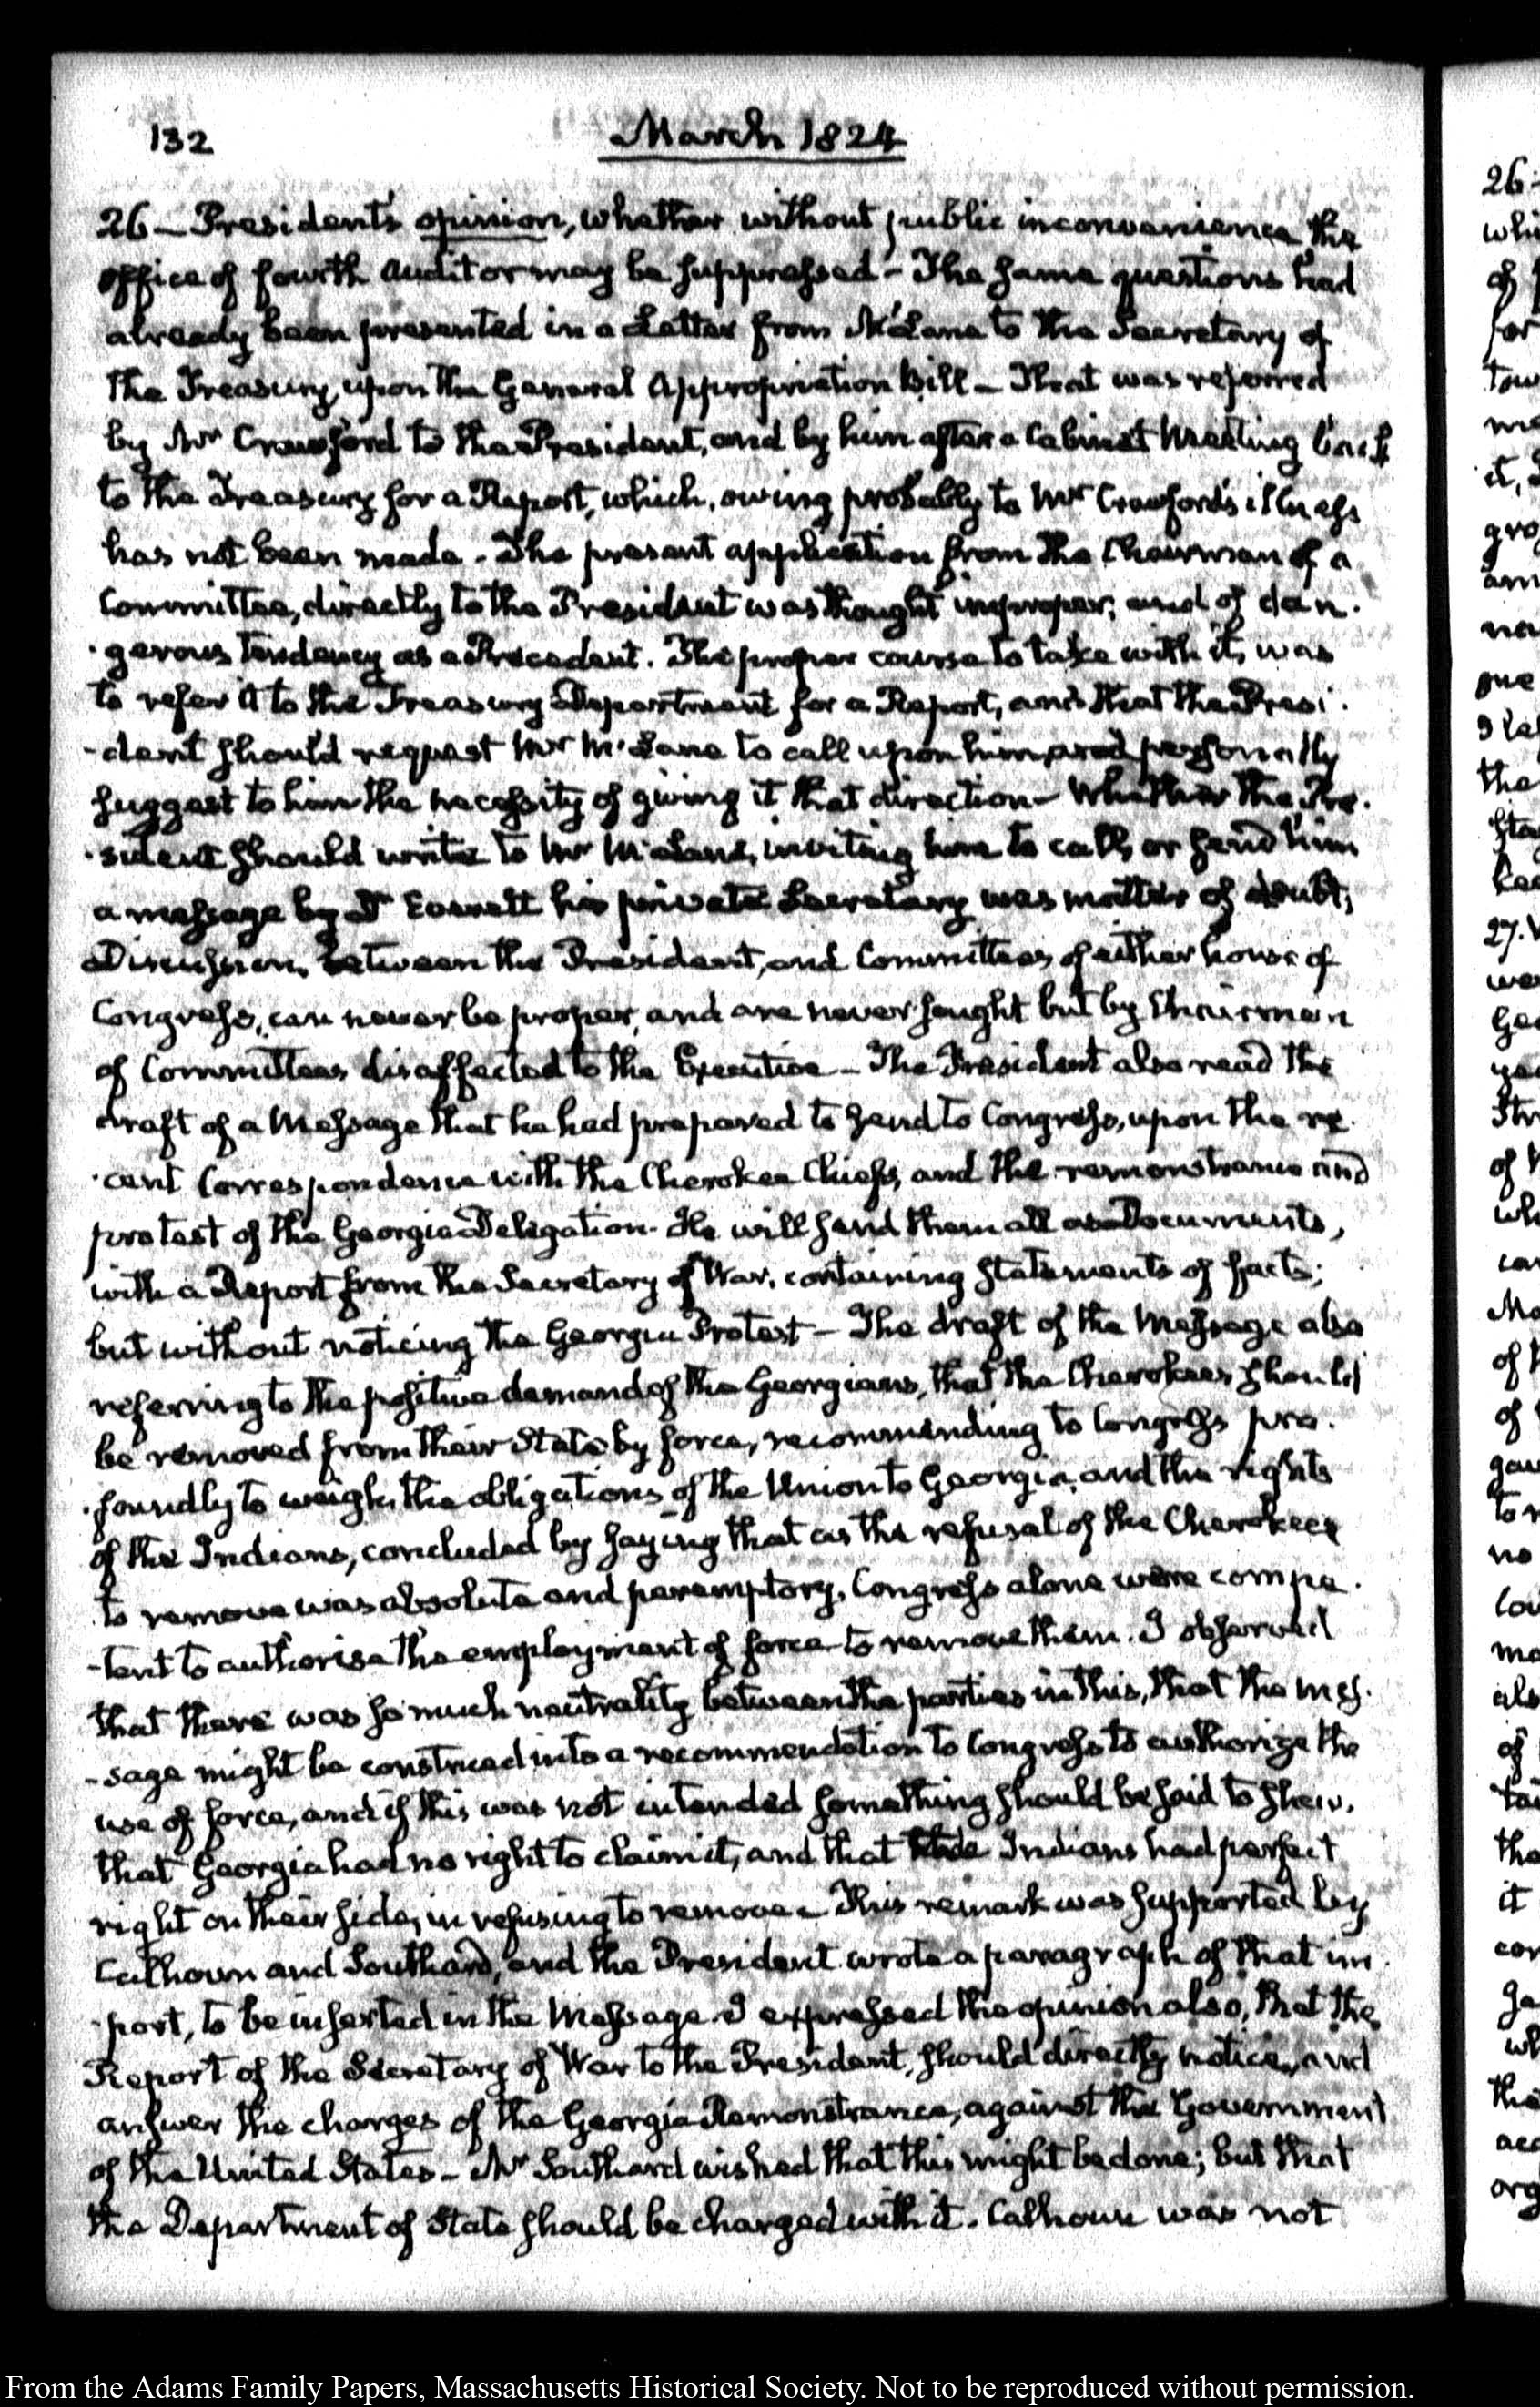 132
March 1824
26 — President's opinion, whether without public inconvenience the
office of fourth Auditor may be suppressed — The same questions had
already been presented in a Letter from McLane to the Secretary of
the Treasury, upon the General Appropriation Bill — That was referred
by Mr Crawford to the President, and by him after a Cabinet Meeting back
to the Treasury for a Report, which, owing probably to Mr Crawford's illness
has not been made. The present application from the Chairman of a
Committee, directly to the President was thought improper, and of dan-
-gerous tendency as a Precedent. The proper course to take with it, was
to refer it to the Treasury Department for a Report, and that the Presi-
-dent should request Mr McLane to call upon him and personally
suggest to him the necessity of giving it that direction — Whether the Pre-
-sident should write to Mr McLane, inviting him to call, or send him
a message by Dr Everett his private Secretary was matter of doubt;
Discussions between the President, and Committees of either house of
Congress, can never be proper, and are never sought but by Chairmen
of Committees disaffected to the Executive — The President also read the
draft of a Message that he had prepared to send to Congress, upon the re-
-cent Correspondence with the Cherokee Chiefs, and the remonstrance and
protest of the Georgia Delegation. He will send them all as Documents,
with a Report from the Secretary of War, containing statements of facts;
but without noticing the Georgia Protest — The draft of the Message also
referring to the positive demand of the Georgians, that the Cherokees should
be removed from their State by force, recommending to Congress pro-
-foundly to weigh, the obligations of the Union to Georgia, and the rights
of the Indians, concluded by saying that as the refusal of the Cherokees
to remove was absolute and peremptory, Congress alone were compe-
-tent to authorise the employment of force to remove them. I observed
that there was so much neutrality between the parties in this, that the mes-
-sage might be construed into a recommendation to Congress to authorize the
use of force, and if this was not intended something should be said to shew,
that Georgia had no right to claim it, and that the Indians had perfect
right on their side, in refusing to remove. This remark was supported by
Calhoun and Southard, and the President wrote a paragraph of that im-
-port, to be inserted in the Message. I expressed the opinion also, that the
Report of the Secretary of War to the President, should directly notice, and
answer the charges of the Georgia Remonstrance, against the Government
of the United States — Mr Southard wished that this might be done; but that
the Department of State should be charged with it. Calhoun was not
From the Adams Family Papers, Massachusetts Historical Society. Not to be reproduced without permission.